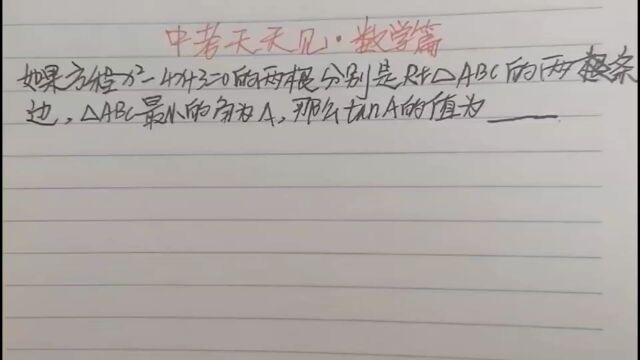 中考天天见·数学篇
如果方程x²-4x+3=0的两根分别是Rt△ABC的两条
边,△ABC最小的角为A,那么tanA的值为____